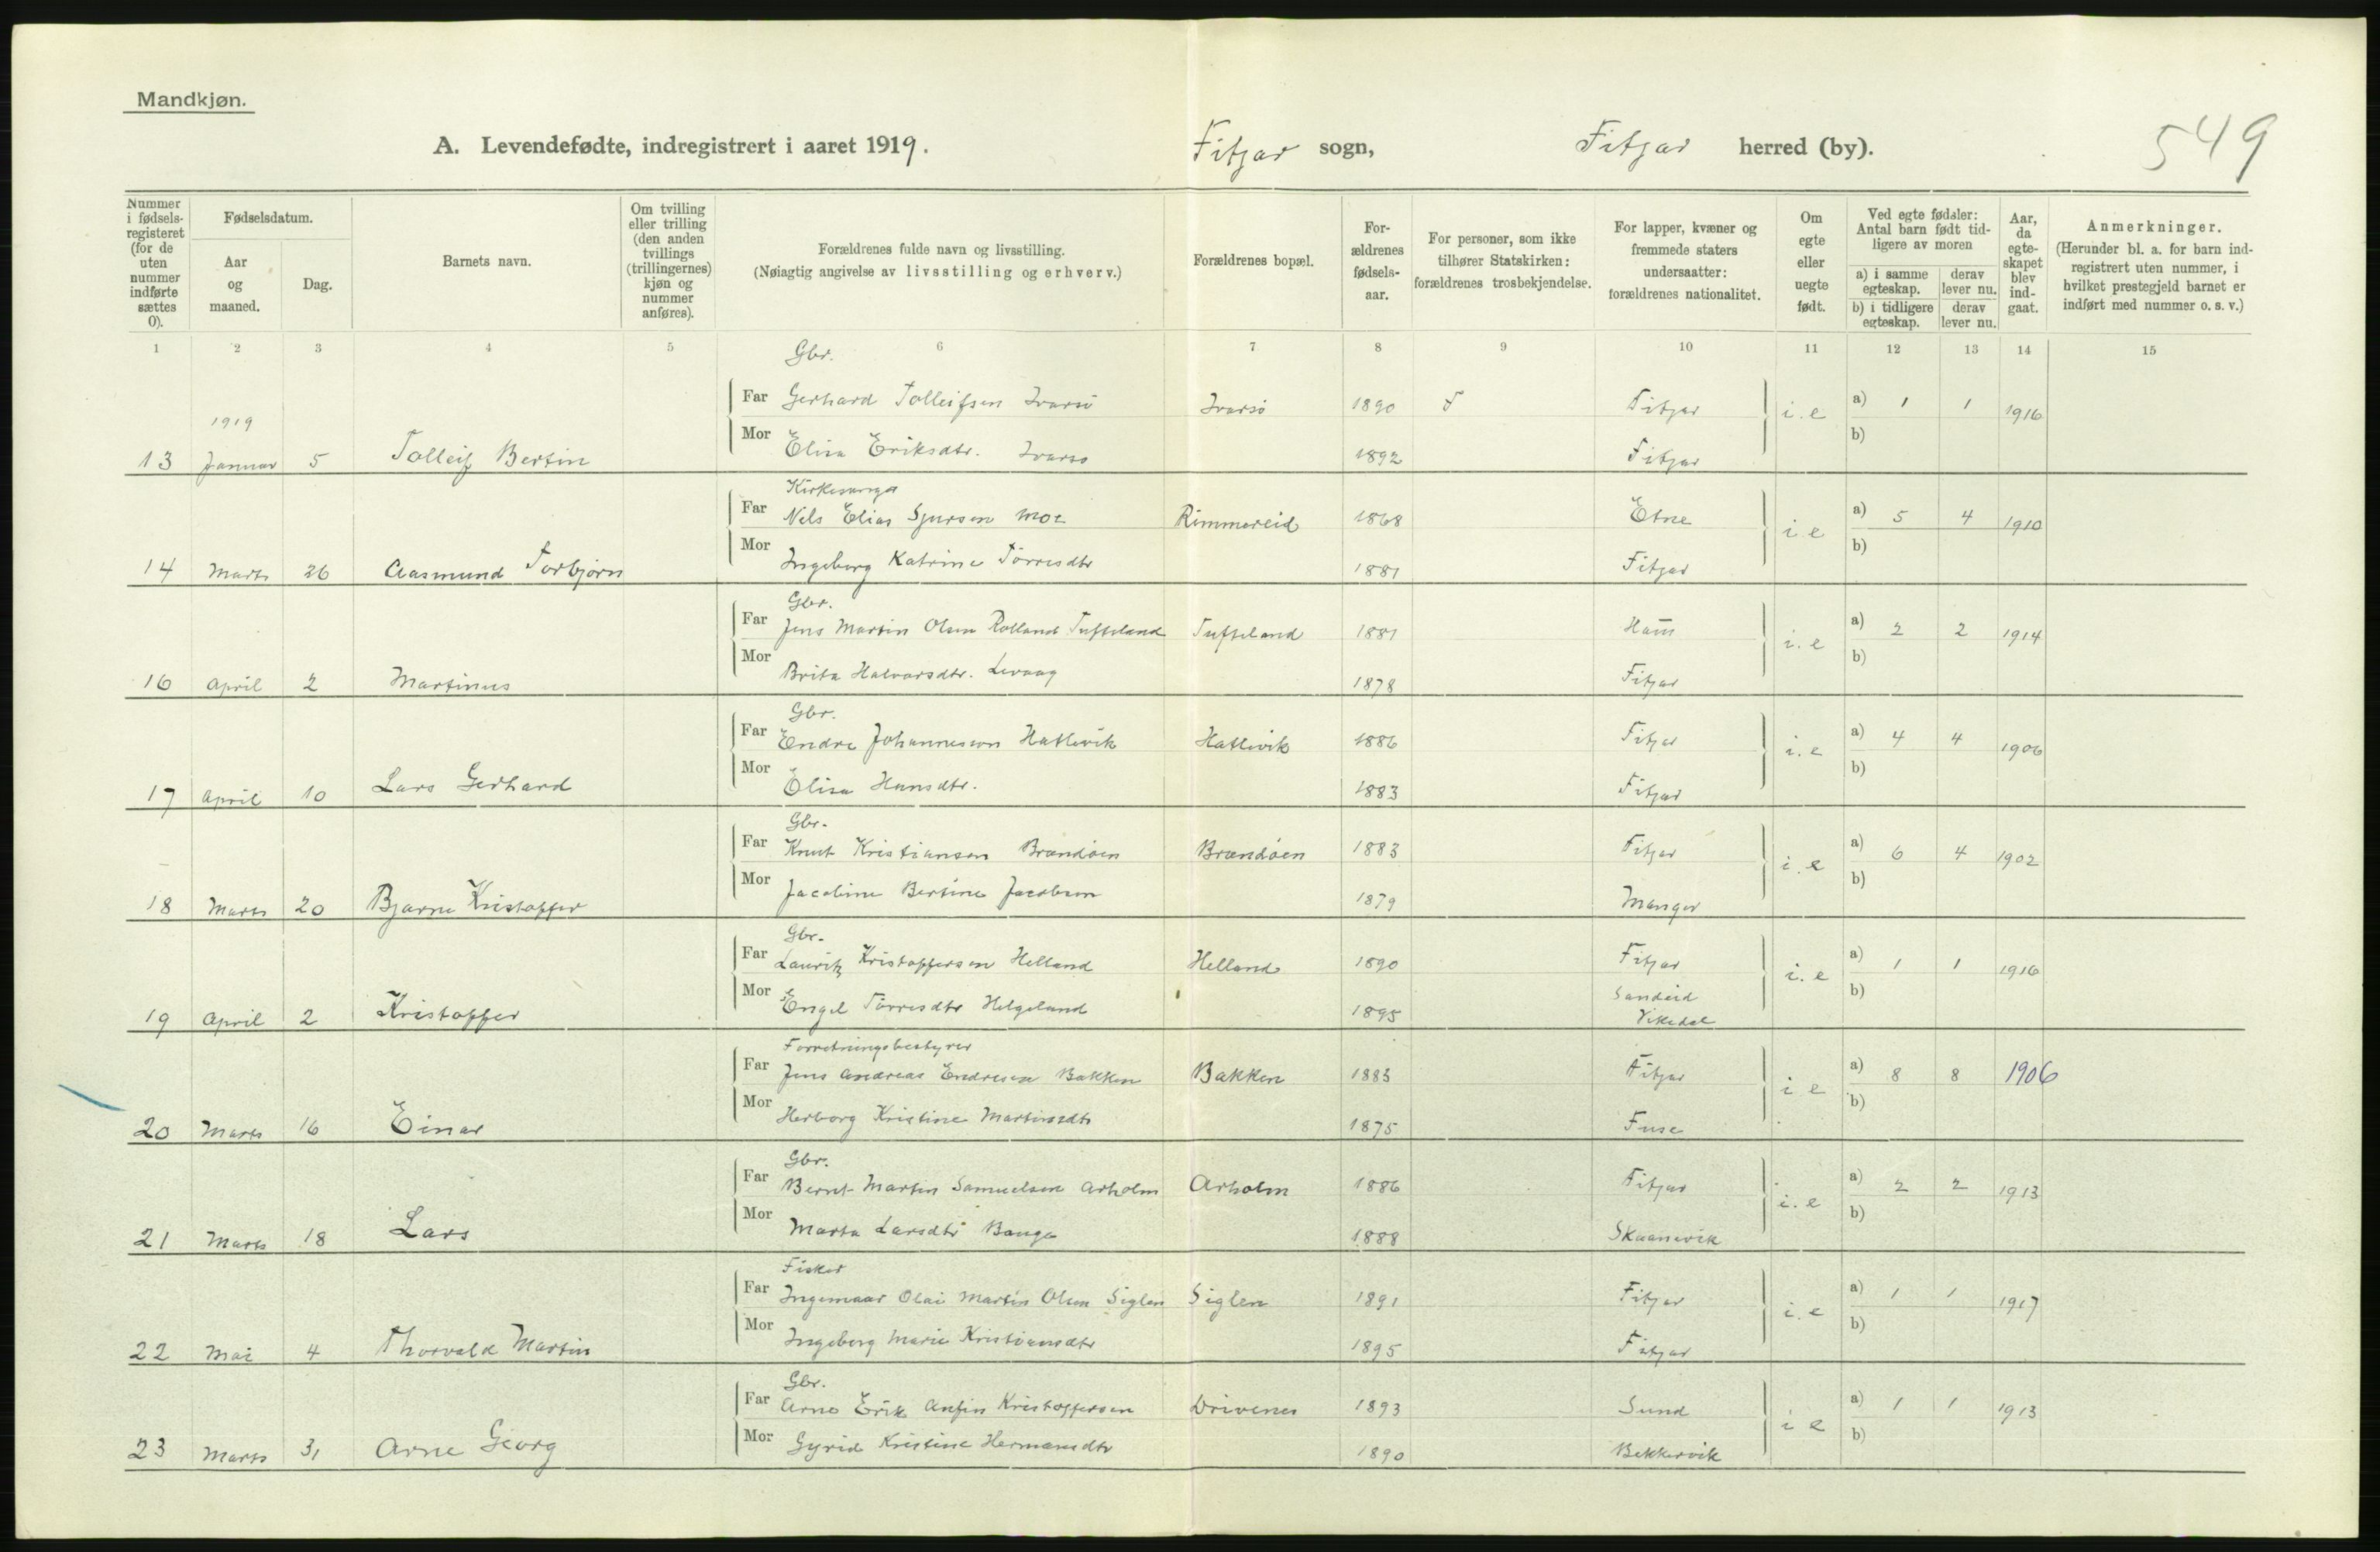 Mandkjøn.
A. Levendefødte, indregistrert i aaret 1919. Fitjar sogn, Fitjar herred (by). 549
Nummer i fødsels-registeret (for de uten nummer indførte sættes 0). Fødselsdatum. Aar og maaned. Dag. Barnets navn. Om tvilling eller trilling (den anden tvillings (trillingernes) kjøn og nummer anføres). Forældrenes fulde navn og livsstilling. (Nøiagtig angivelse av livsstilling og erhverv.) Forældrenes bopæl. For-ældrenes fødsels-aar. For personer, som ikke tilhører Statskirken: forældrenes trosbekjendelse. For lapper, kvæner og fremmede staters undersaatter: forældrenes nationalitet. Om egte eller uegte født. Ved egte fødsler: Antal barn født tid-ligere av moren a) i samme egteskap. derav lever nu. b) i tidligere egteskap. derav lever nu. Aar, da egte-skapet blev ind-gaat. Anmerkninger. (Herunder bl. a. for barn ind-registrert uten nummer, i hvilket prestegjeld barnet er indført med nummer o. s. v.)
1 2 3 4 5 6 7 8 9 10 11 12 13 14 15
Gbr.
Far Gerhard Tolleifsen Ivarsö Ivarsö 1890 F Fitjar i. e a) 1 1 1916
1919
Mor Elisa Eriksdtr. Ivarsö 1892 Fitjar b)
13 Januar 5 Tolleif Bertin
Kirkesanger
Far Nels Elias Sjursen Moe Rimmereid 1868 Etne i e a) 5 4 1910
Mor Ingeborg Katrine Törresdtr 1881 Fitjar b)
14 Marts 26 Aasmund Torbjörn
Gbr.
Far Jens Martin Olsen Rolland Tufteland Tufteland 1881 Ham i. e a) 2 2 1914
Mor Brita Halvorsdtr. Levaag 1878 Fitjar b)
16 April 2 Martinus
Gbr.
Far Endre Johannesson Hatlevik Hatlevik 1886 Fitjar i. e a) 4 4 1906
Mor Elisa Hansdtr. 1883 Fitjar b)
17 April 10 Lars Gerhard
Gbr.
Far Knut Kristiansen Brandöen Brandöen 1883 Fitjar i. e a) 6 4 1902
Mor Jacobine Bertine Jacobsen 1879 Manger b)
18 Marts 20 Bjarne Kristoffer
Gbr.
Far Lauritz Kristoffersen Helland Helland 1890 Fitjar i. e a) 1 1 1916
Mor Engel Törresdtr Helgeland 1895 Sandeid Vikedal b)
19 April 2 Kristoffer
Forretningsbestyrer
Far Jens Andreas Endresen Bakken Bakken 1883 Fitjar i e a) 8 8 1906
Mor Herborg Kristine Martinsdtr 1875 Fuse b)
20 Marts 16 Einar
Gbr.
Far Bernt Martin Samuelsen Arholm Arholm 1886 Fitjar i. e a) 2 2 1913
Mor Marta Larsdtr Bauge 1888 Skaanevik b)
21 Marts 18 Lars
Fisker
Far Ingemaar Olai Martin Olsen Siglen Siglen 1891 Fitjar i. e a) 1 1 1917
Mor Ingeborg Marie Kristiansdtr 1895 Fitjar b)
22 Mai 4 Thorvald Martin
Gbr.
Far Arne Erik Anfin Kristoffersen Drivenes 1893 Sund i e a) 1 1 1913
Mor Gyrid Kristine Hermansdtr 1890 Bekkervik b)
23 Marts 31 Arne Georg